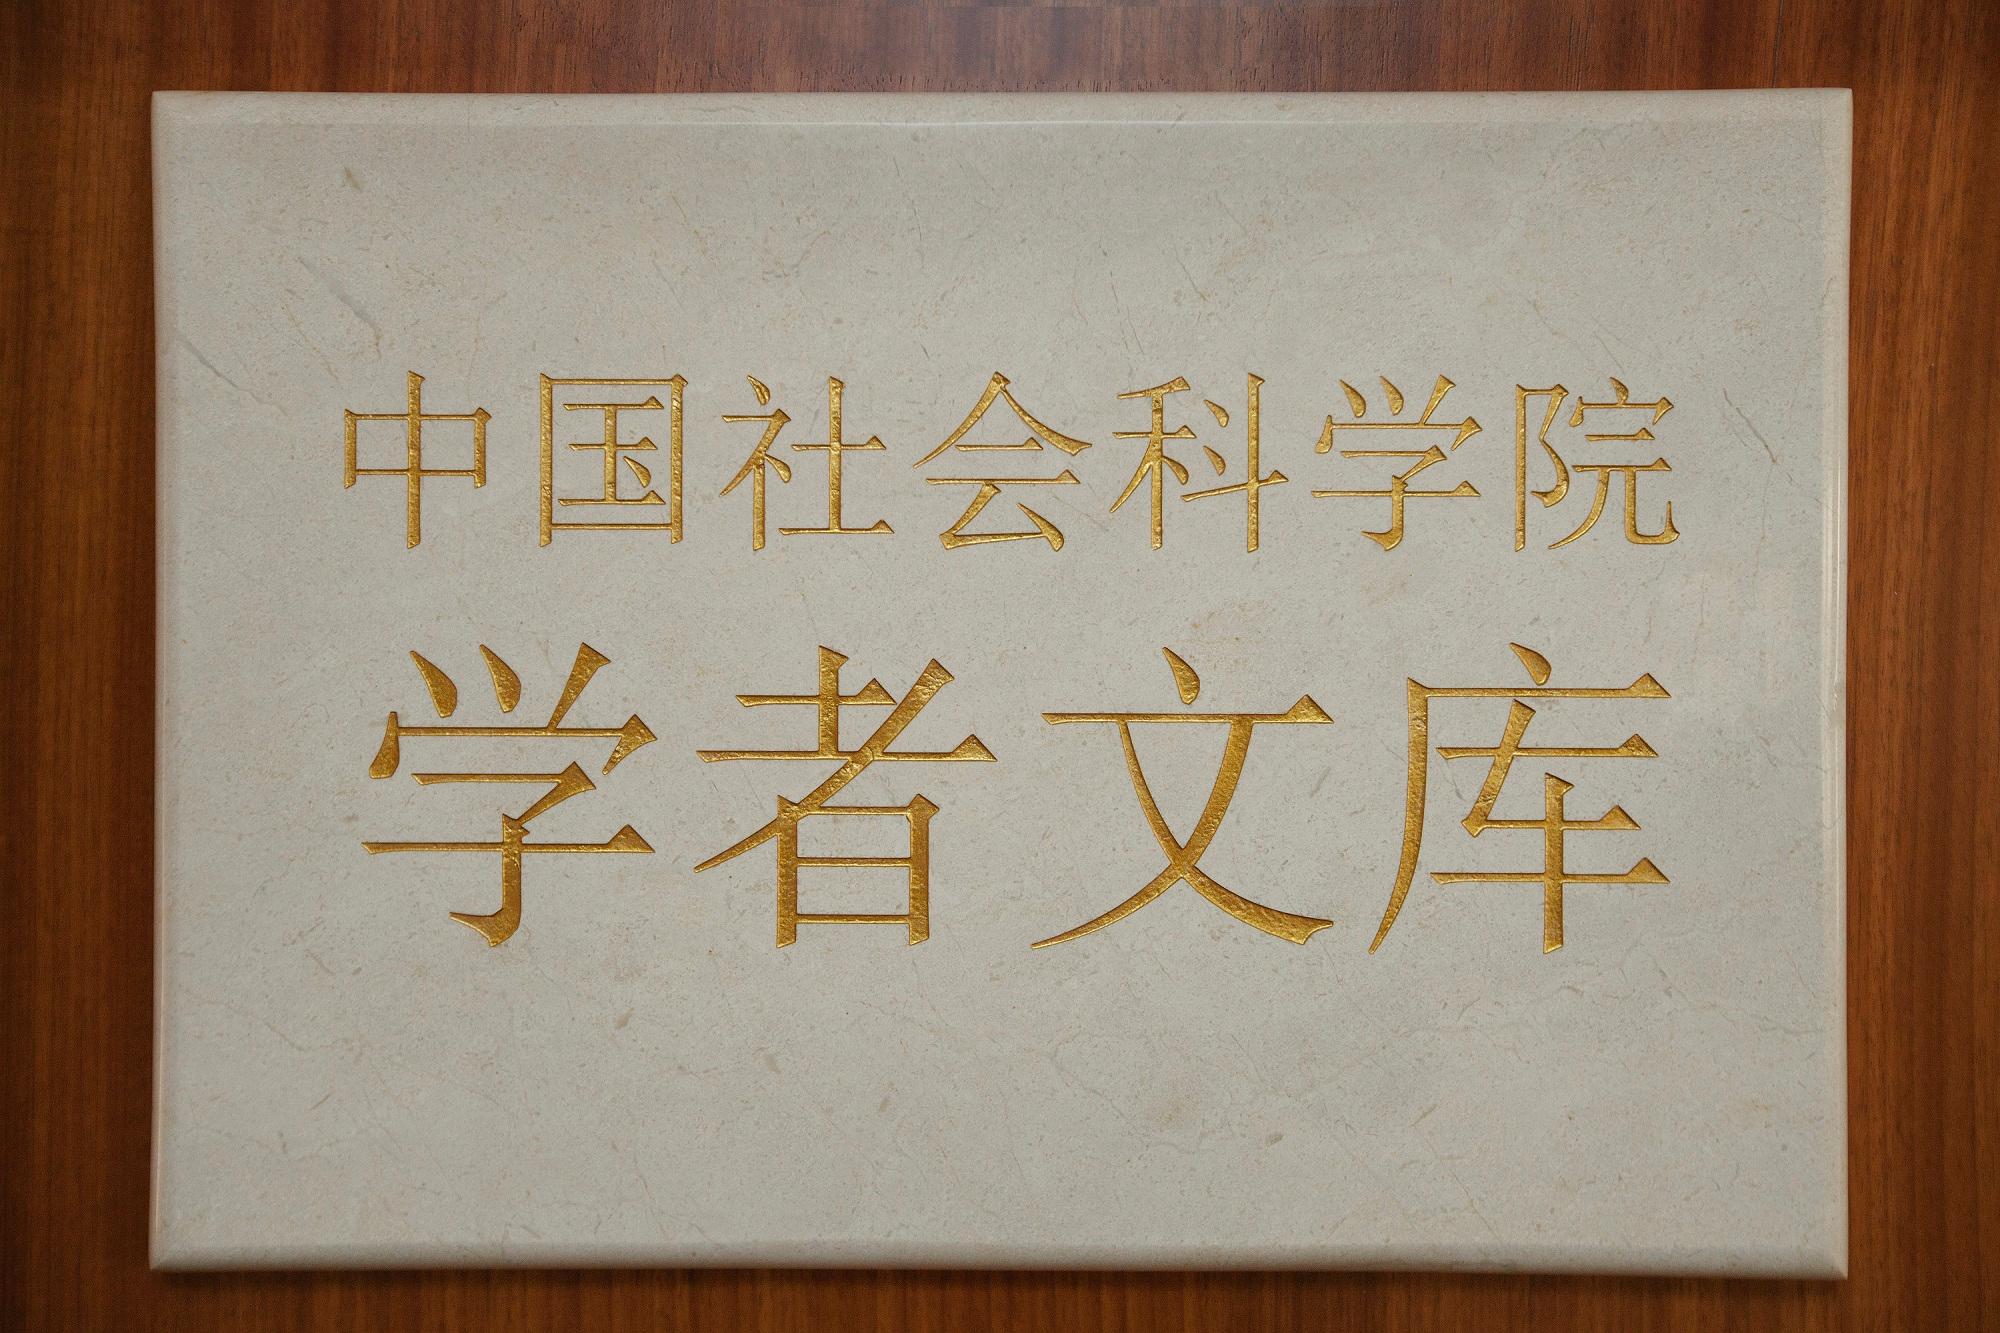 中国社会科学院
学者文库